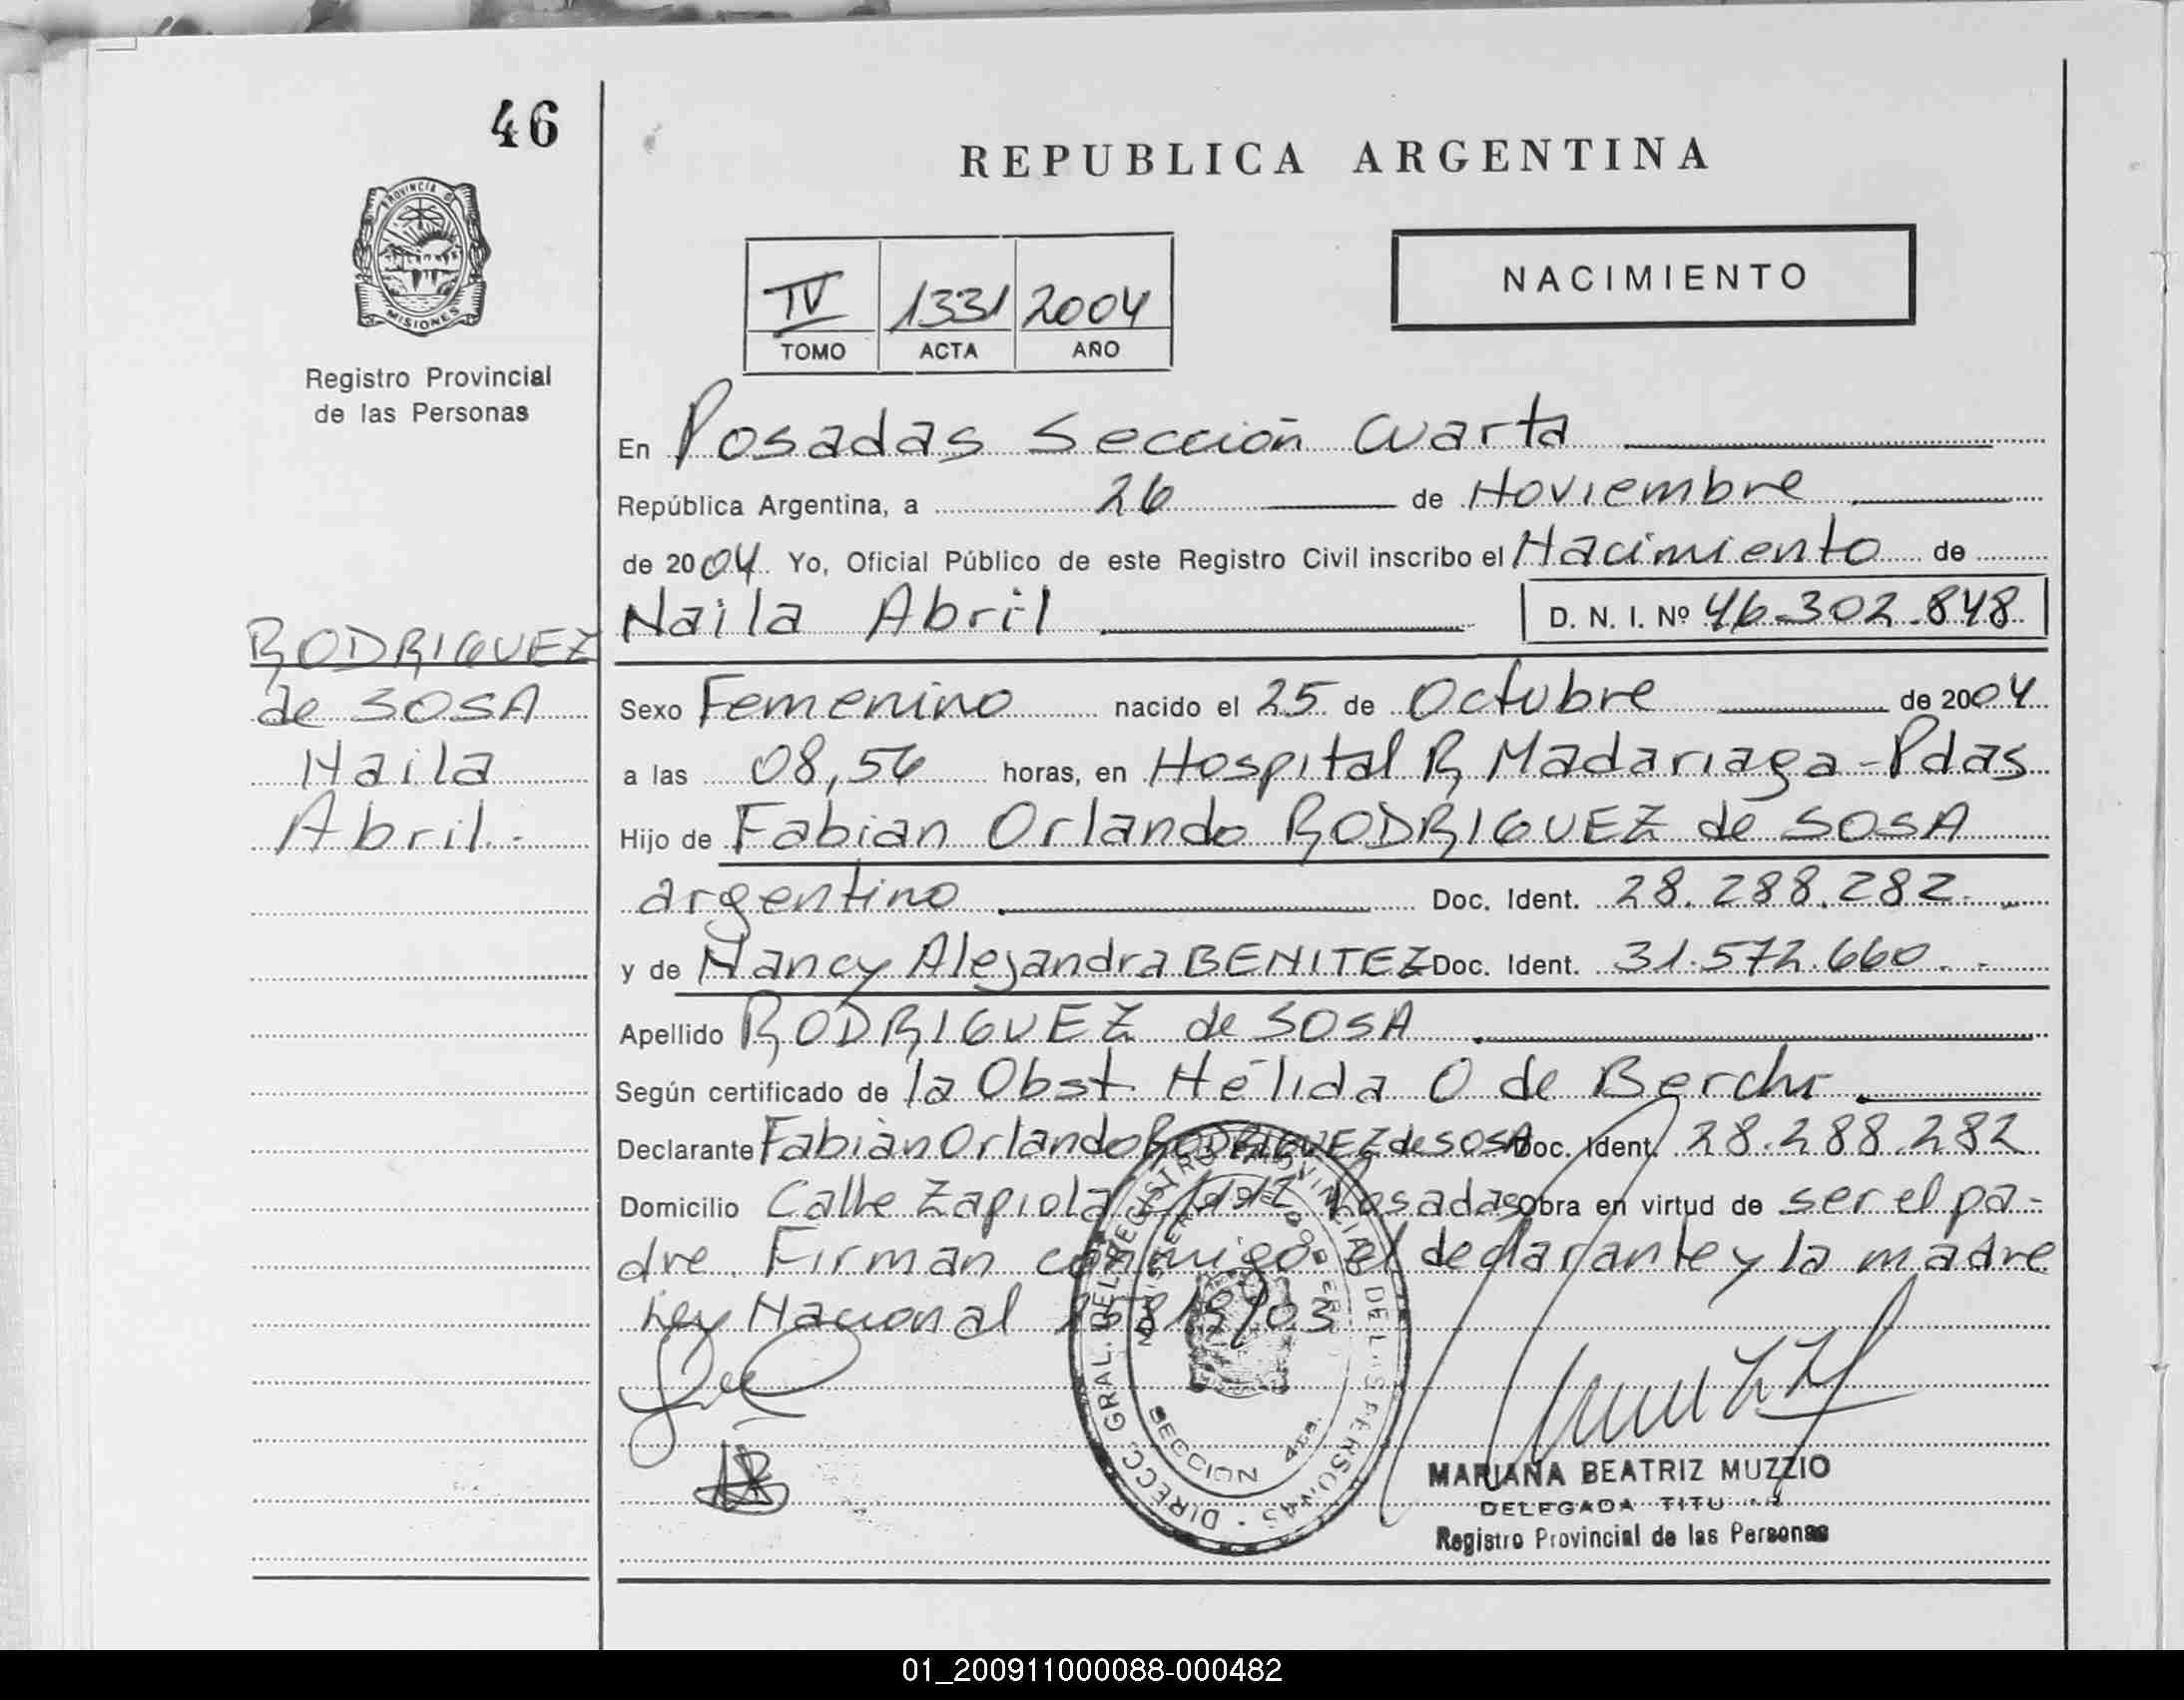 46
REPUBLICA ARGENTINA
PROVINCIA D
MISIONES
Registro Provincial
de las Personas
NACIMIENTO
IV 1331 2004
TOMO ACTA AÑO
En Posadas Sección Cuarta
República Argentina, a 26 de Noviembre
de 2004 Yo, Oficial Público de este Registro Civil inscribo el Nacimiento de
Naila Abril D. N. I. Nº 46.302.848
RODRIGUEZ
de SOSA
Naila
Abril.-
Sexo Femenino nacido el 25 de Octubre de 2004
a las 08,56 horas, en Hospital R Madariaga - Pdas
Hijo de Fabian Orlando RODRIGUEZ de SOSA
argentino Doc. Ident. 28.288.282
y de Nancy Alejandra BENITEZ Doc. Ident. 31.572.660
Apellido RODRIGUEZ de SOSA
Según certificado de la Obst. Nélida O de Berchi
Declarante Fabian Orlando RODRIGUEZ de SOSA Doc. Ident. 28.288.282
Domicilio Calle Zapiola Posadas Obra en virtud de ser el pa-
dre. Firman conmigo el declarante y la madre
Ley Nacional
DIRECC. GRAL. DEL REGISTRO PROVINCIAL DE LAS PERSONAS
SECCION 4ta.
MARIANA BEATRIZ MUZZIO
DELEGADA
Registro Provincial de las Personas
01_200911000088-000482